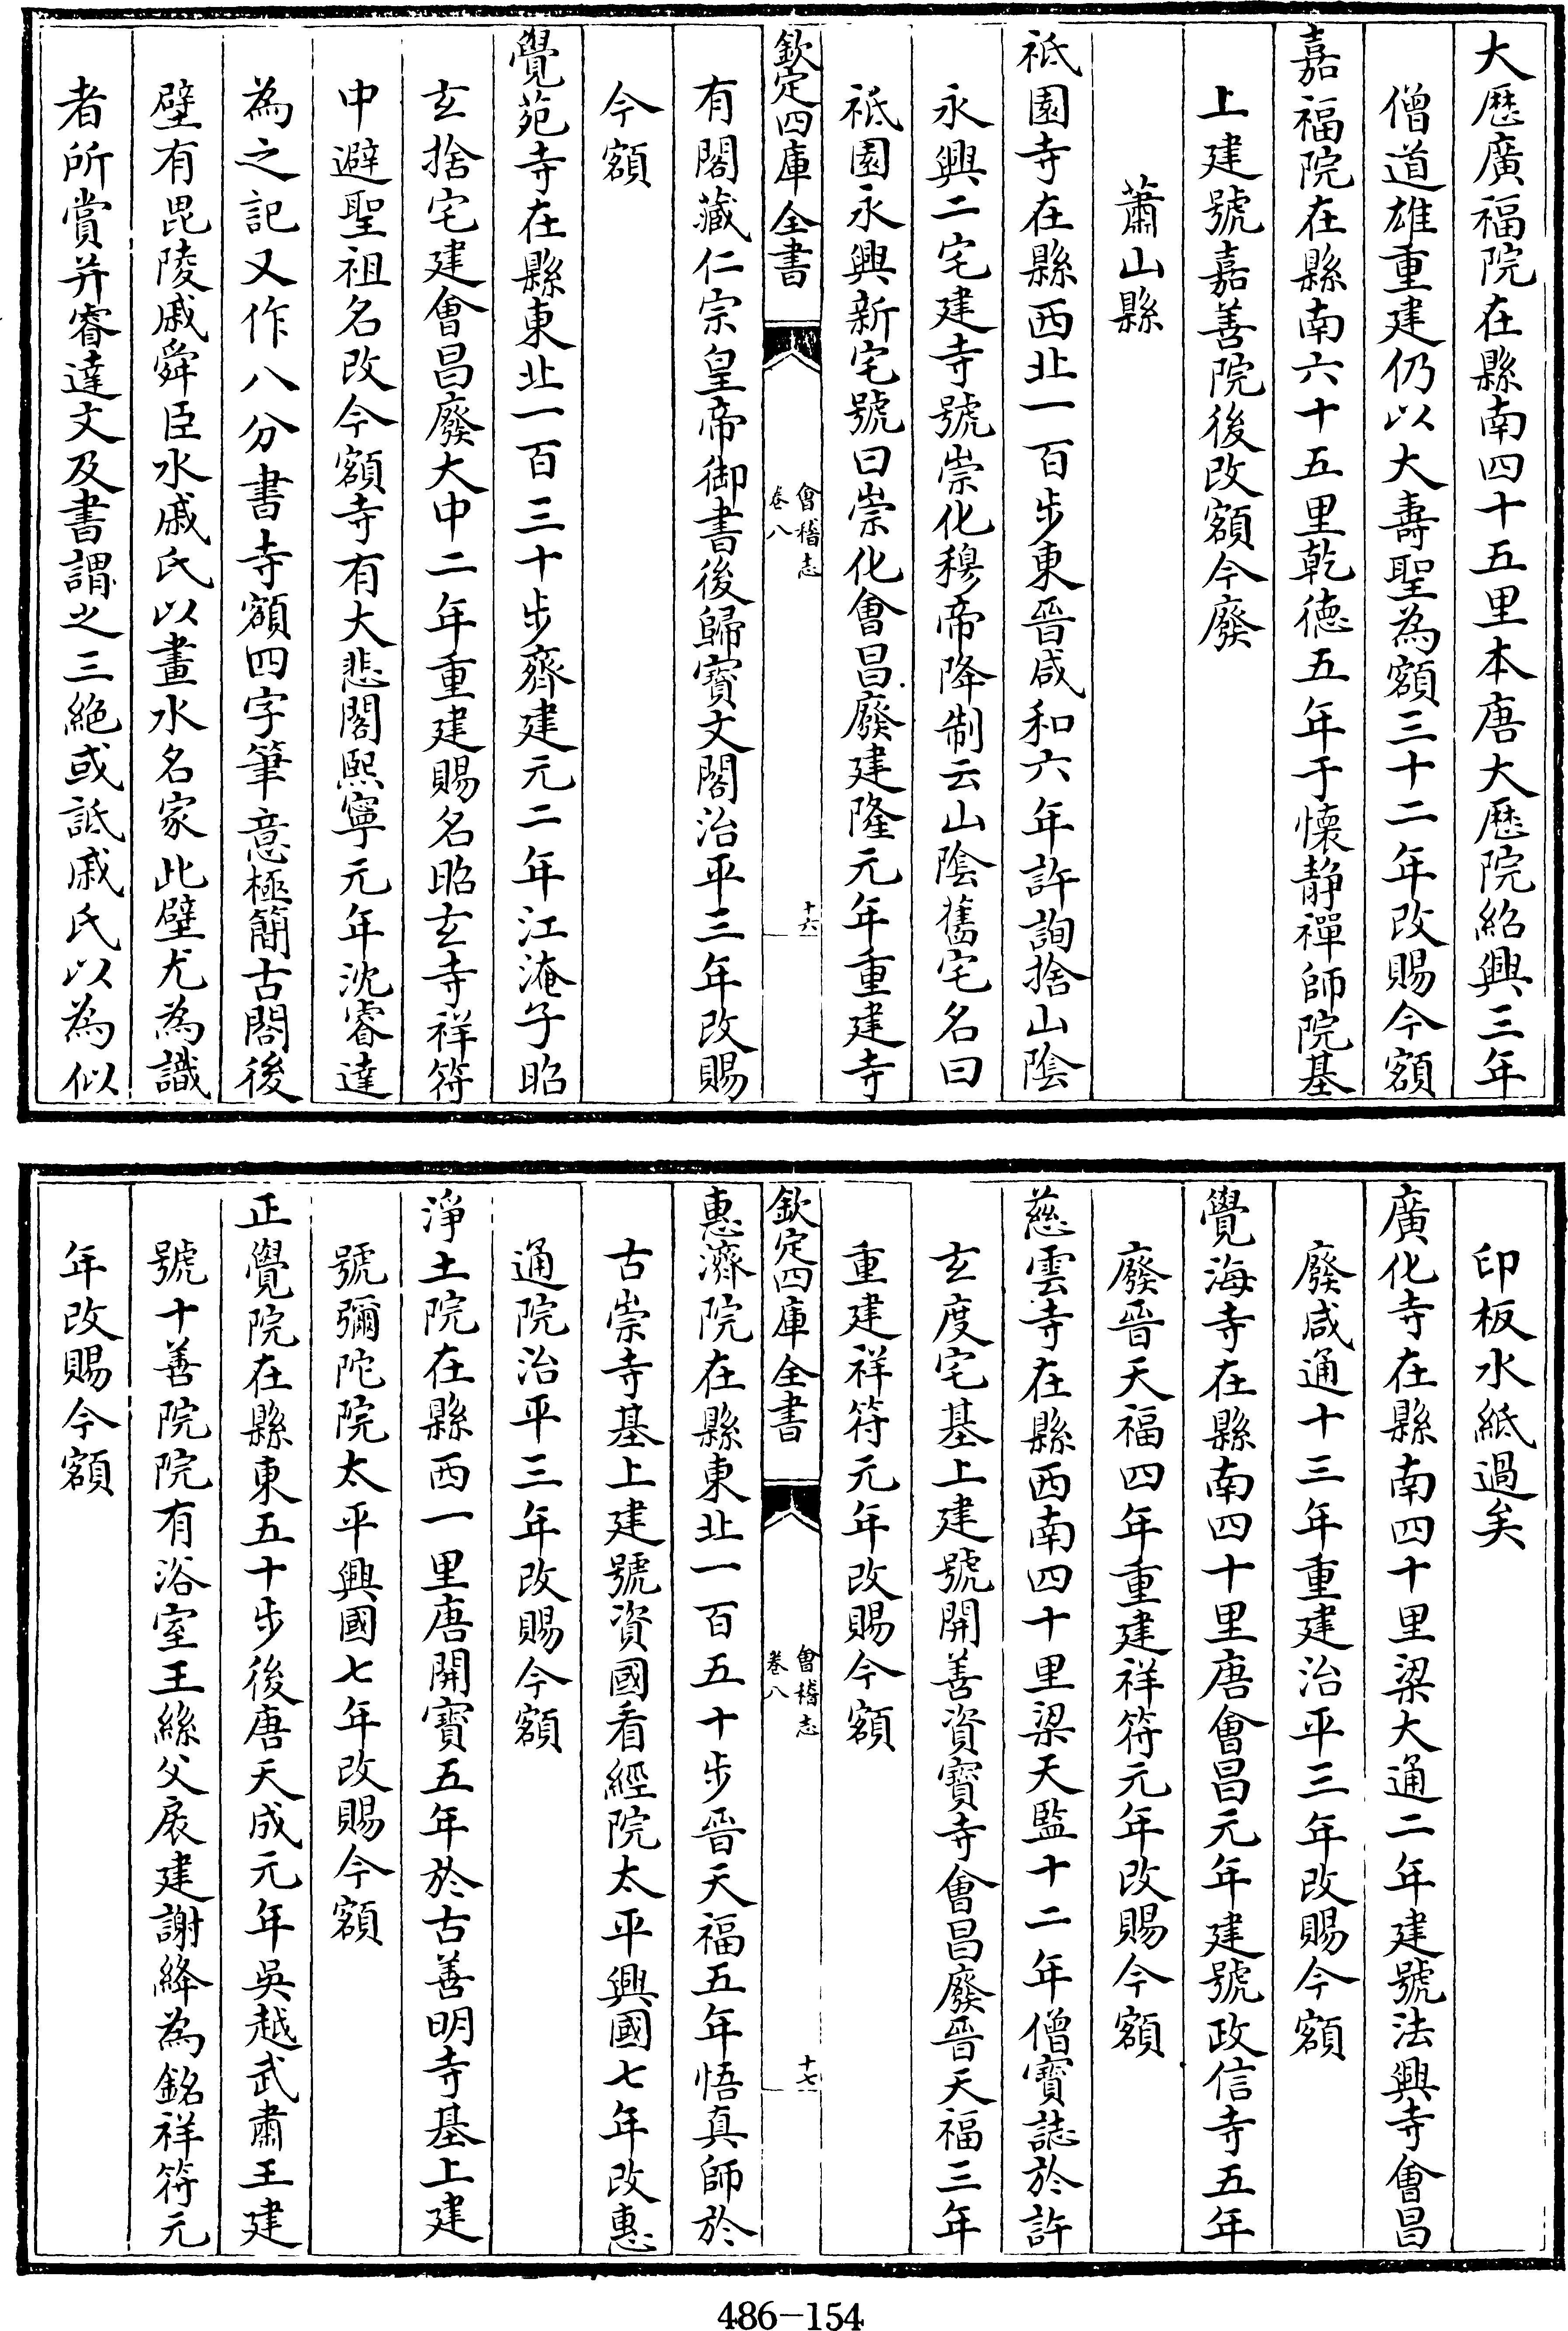 大歴廣福院在縣南四十五里本唐大歴院紹興三年
僧道雄重建仍以大壽聖為額三十二年改賜今額
嘉福院在縣南六十五里乾德五年于懷静禪師院基
上建號嘉善院後改額今廢
蕭山縣
祗園寺在縣西北一百步東晉咸和六年許詢捨山陰
永興二宅建寺號崇化穆帝降制云山陰舊宅名曰
祗園永興新宅號曰崇化會昌廢建隆元年重建寺
欽定四庫全書
會稽志
卷八
十六
有閣藏仁宗皇帝御書後歸寳文閣治平三年改賜
今額
覺苑寺在縣東北一百三十步齊建元二年江淹子昭
玄捨宅建會昌廢大中二年重建賜名昭玄寺祥符
中避聖祖名改今額寺有大悲閣熙寧元年沈睿達
為之記又作八分書寺額四字筆意極簡古閣後
壁有毘陵戚舜臣水戚氏以畫水名家此壁尤為識
者所賞并睿達文及書謂之三絶或詆戚氏以為似
印板水紙過矣
廣化寺在縣南四十里梁大通二年建號法興寺會昌
廢咸通十三年重建治平三年改賜今額
覺海寺在縣南四十里唐會昌元年建號政信寺五年
廢晉天福四年重建祥符元年改賜今額
慈雲寺在縣西南四十里梁天監十二年僧寳誌於許
玄度宅基上建號開善資寳寺會昌廢晉天福三年
重建祥符元年改賜今額
欽定四庫全書
會稽志
卷八
十七
惠濟院在縣東北一百五十步晉天福五年悟真師於
古崇寺基上建號資國看經院太平興國七年改惠
通院治平三年改賜今額
淨土院在縣西一里唐開寳五年於古善明寺基上建
號彌陀院太平興國七年改賜今額
正覺院在縣東五十步後唐天成元年吳越武肅王建
號十善院院有浴室王絲父扆建謝絳為銘祥符元
年改賜今額
486-154